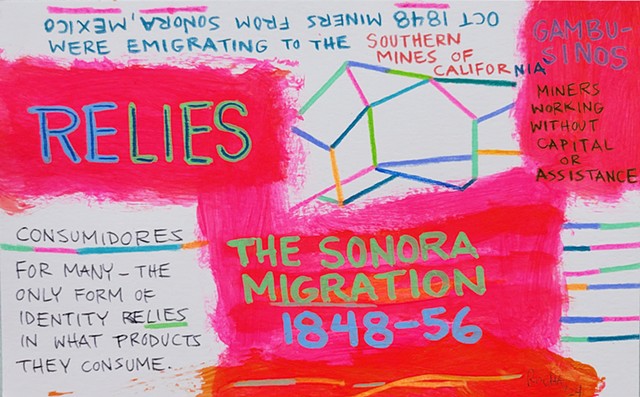 OCT 1848 MINERS FROM SONORA, MEXICO
WERE EMIGRATING TO THE SOUTHERN
MINES OF
CALIFORNIA
GAMBU-
SINOS
MINERS
WORKING
WITHOUT
CAPITAL
OR
ASSISTANCE
RELIES
CONSUMIDORES
FOR MANY – THE
ONLY FORM OF
IDENTITY RELIES
IN WHAT PRODUCTS
THEY CONSUME.
THE SONORA
MIGRATION
1848-56